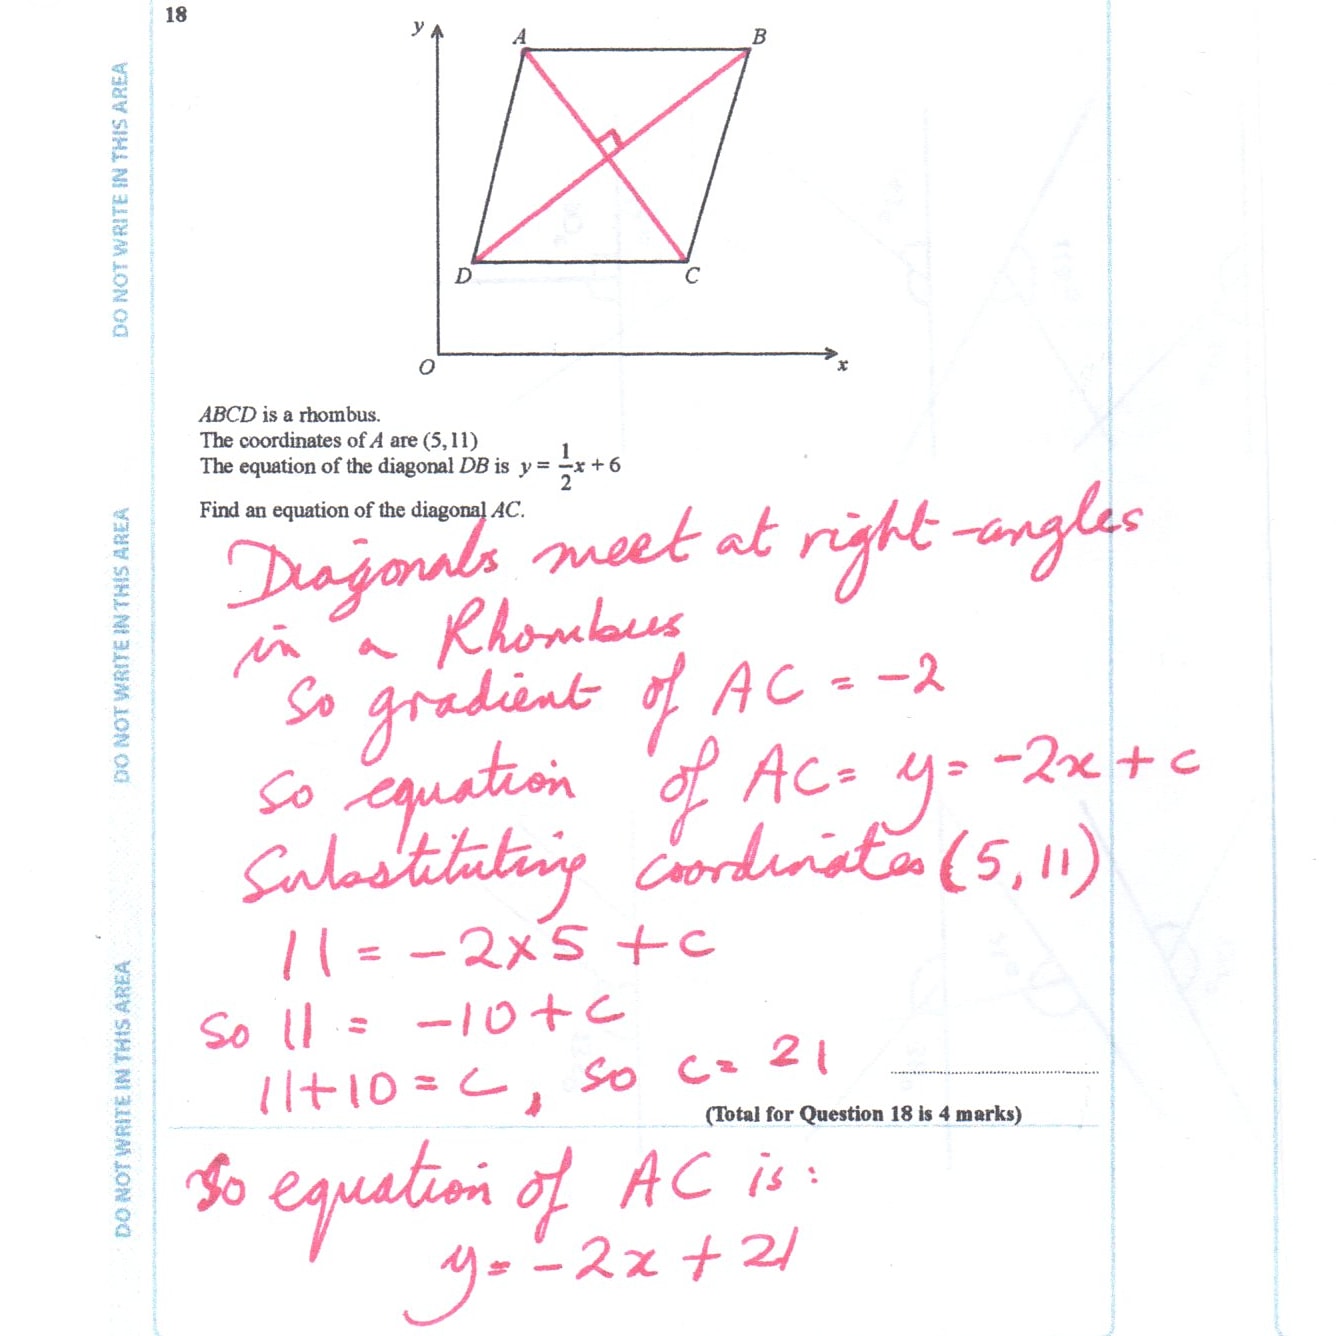 18
y
A
B
D
C
O
x
DO NOT WRITE IN THIS AREA
ABCD is a rhombus.
The coordinates of A are (5, 11)
The equation of the diagonal DB is y = 1/2 x + 6
Find an equation of the diagonal AC.
DO NOT WRITE IN THIS AREA
Diagonals meet at right-angles
in a Rhombus
So gradient of AC = -2
So equation of AC = y = -2x + c
Substituting coordinates (5, 11)
11 = -2 x 5 + c
So 11 = -10 + c
11 + 10 = c, so c = 21
DO NOT WRITE IN THIS AREA
(Total for Question 18 is 4 marks)
So equation of AC is:
y = -2x + 21